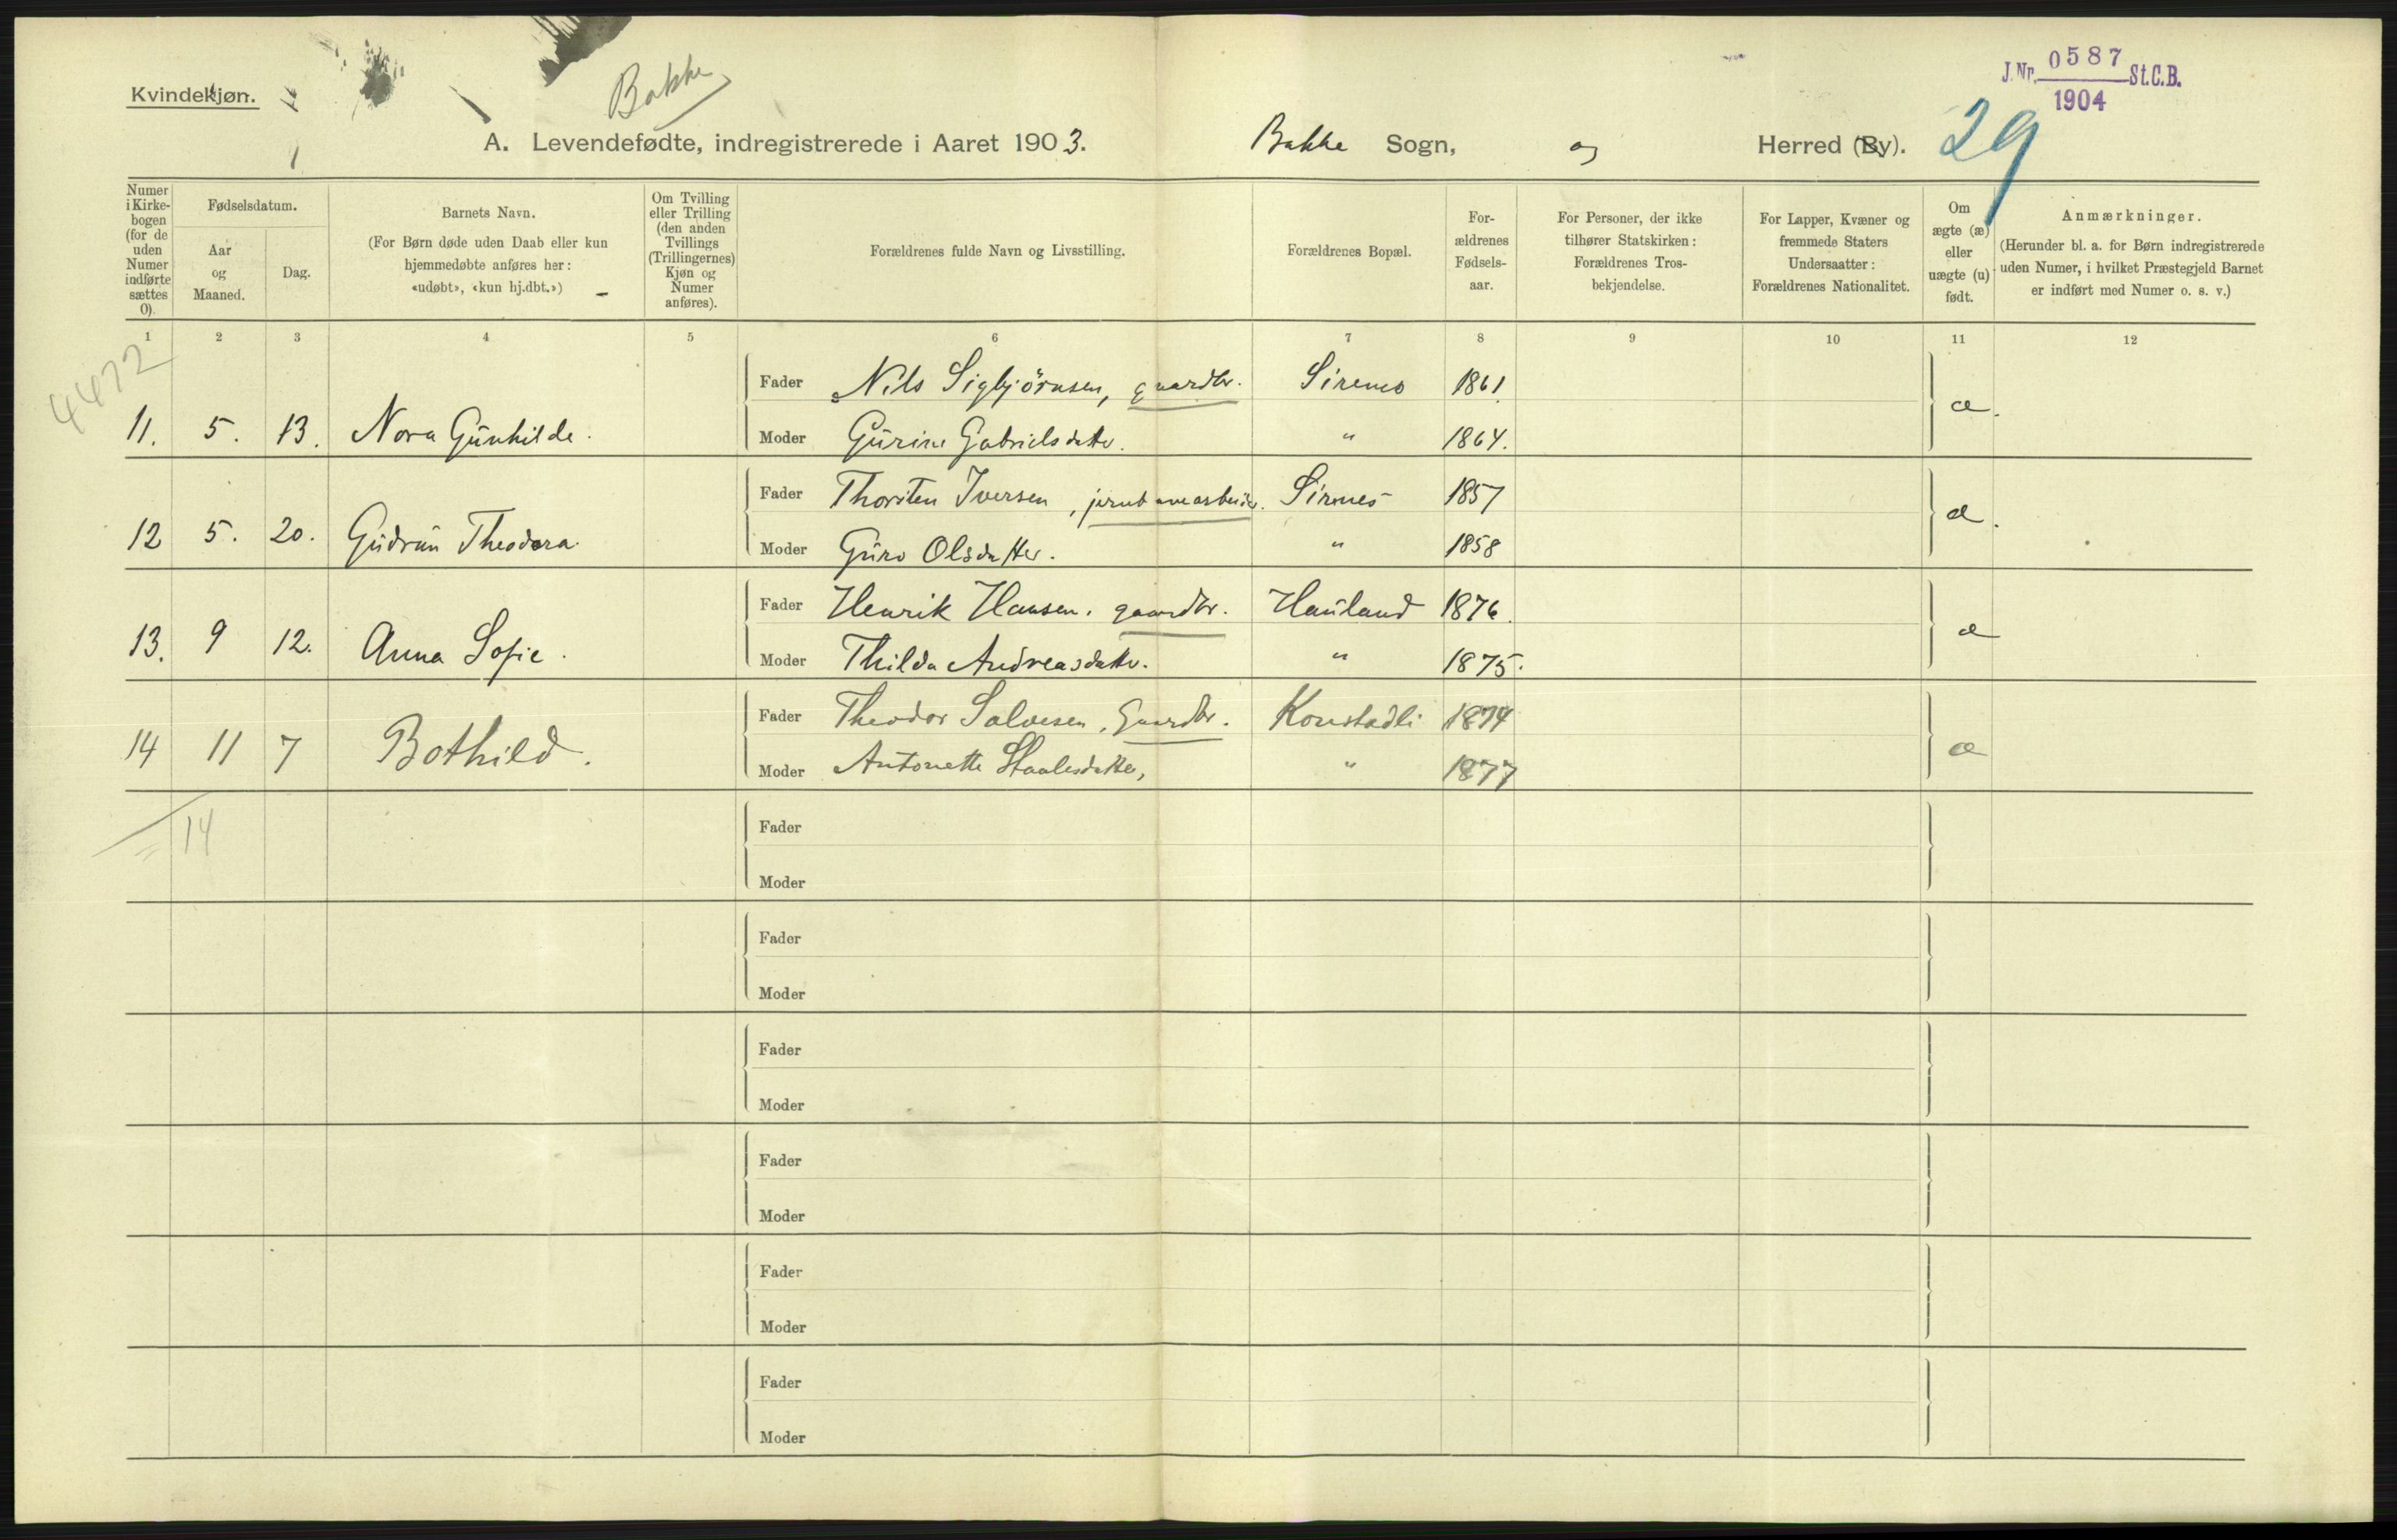 Kvindekjøn.
Bakke
J. Nr. 0587 St.C.B.
1904
29
A. Levendefødte, indregistrerede i Aaret 1903. Bakke Sogn, og Herred (By).
1
Numer i Kirkebogen (for de uden Numer indførte sættes 0).
Fødselsdatum.
Aar og Maaned.
Dag.
Barnets Navn.
(For Børn døde uden Daab eller kun
hjemmedøbte anføres her:
«udøbt», «kun hj.dbt.»)
Om Tvilling
eller Trilling
(den anden
Tvillings
(Trillingernes)
Kjøn og
Numer
anføres).
Forældrenes fulde Navn og Livsstilling.
Forældrenes Bopæl.
For-
ældrenes
Fødsels-
aar.
For Personer, der ikke
tilhører Statskirken:
Forældrenes Tros-
bekjendelse.
For Lapper, Kvæner og
fremmede Staters
Undersaatter:
Forældrenes Nationalitet.
Om
ægte (æ)
eller
uægte (u)
født.
Anmærkninger.
(Herunder bl. a. for Børn indregistrerede
uden Numer, i hvilket Præstegjeld Barnet
er indført med Numer o. s. v.)
1 2 3 4 5 6 7 8 9 10 11 12
4472
Fader Nils Sigbjörnsen, gaardbr. Sirenes 1861
11. 5. 13. Nora Gunhilde. Moder Gurine Gabrielsdatter. " 1864. æ.
Fader Thorsten Iversen, jernbanearbeider. Sirnes 1857
12 5. 20. Gudrun Theodora. Moder Guro Olsdatter. " 1858 æ.
Fader Henrik Hansen. gaardbr. Hauland 1876.
13. 9 12. Anna Sofie. Moder Thilda Andreasdatter. " 1875. æ
Fader Theodor Salvesen, Gaardbr. Konstadli 1874
14 11 7 Bothild. Moder Antonette Staalesdatter, " 1877 æ
14
Fader
Moder
Fader
Moder
Fader
Moder
Fader
Moder
Fader
Moder
Fader
Moder